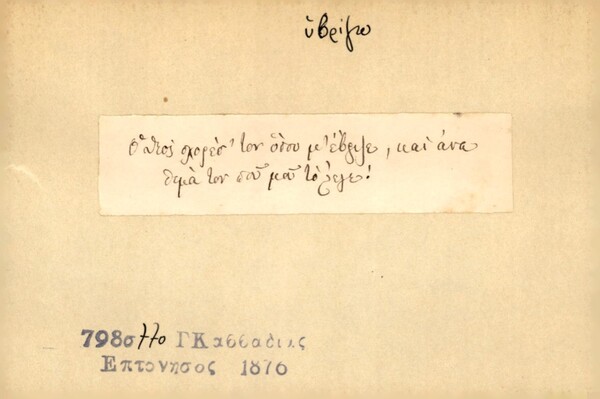 ὑβρίζω
Ὁ Θεὸς σχορέσ' τον ὅπου μ' ἔβριζε, καὶ ἀνα
θεμὰ τον ποῦ μοῦ τὸ λεγε!
798σ770 ΓΚαββαδιας
Επτονησος 1876